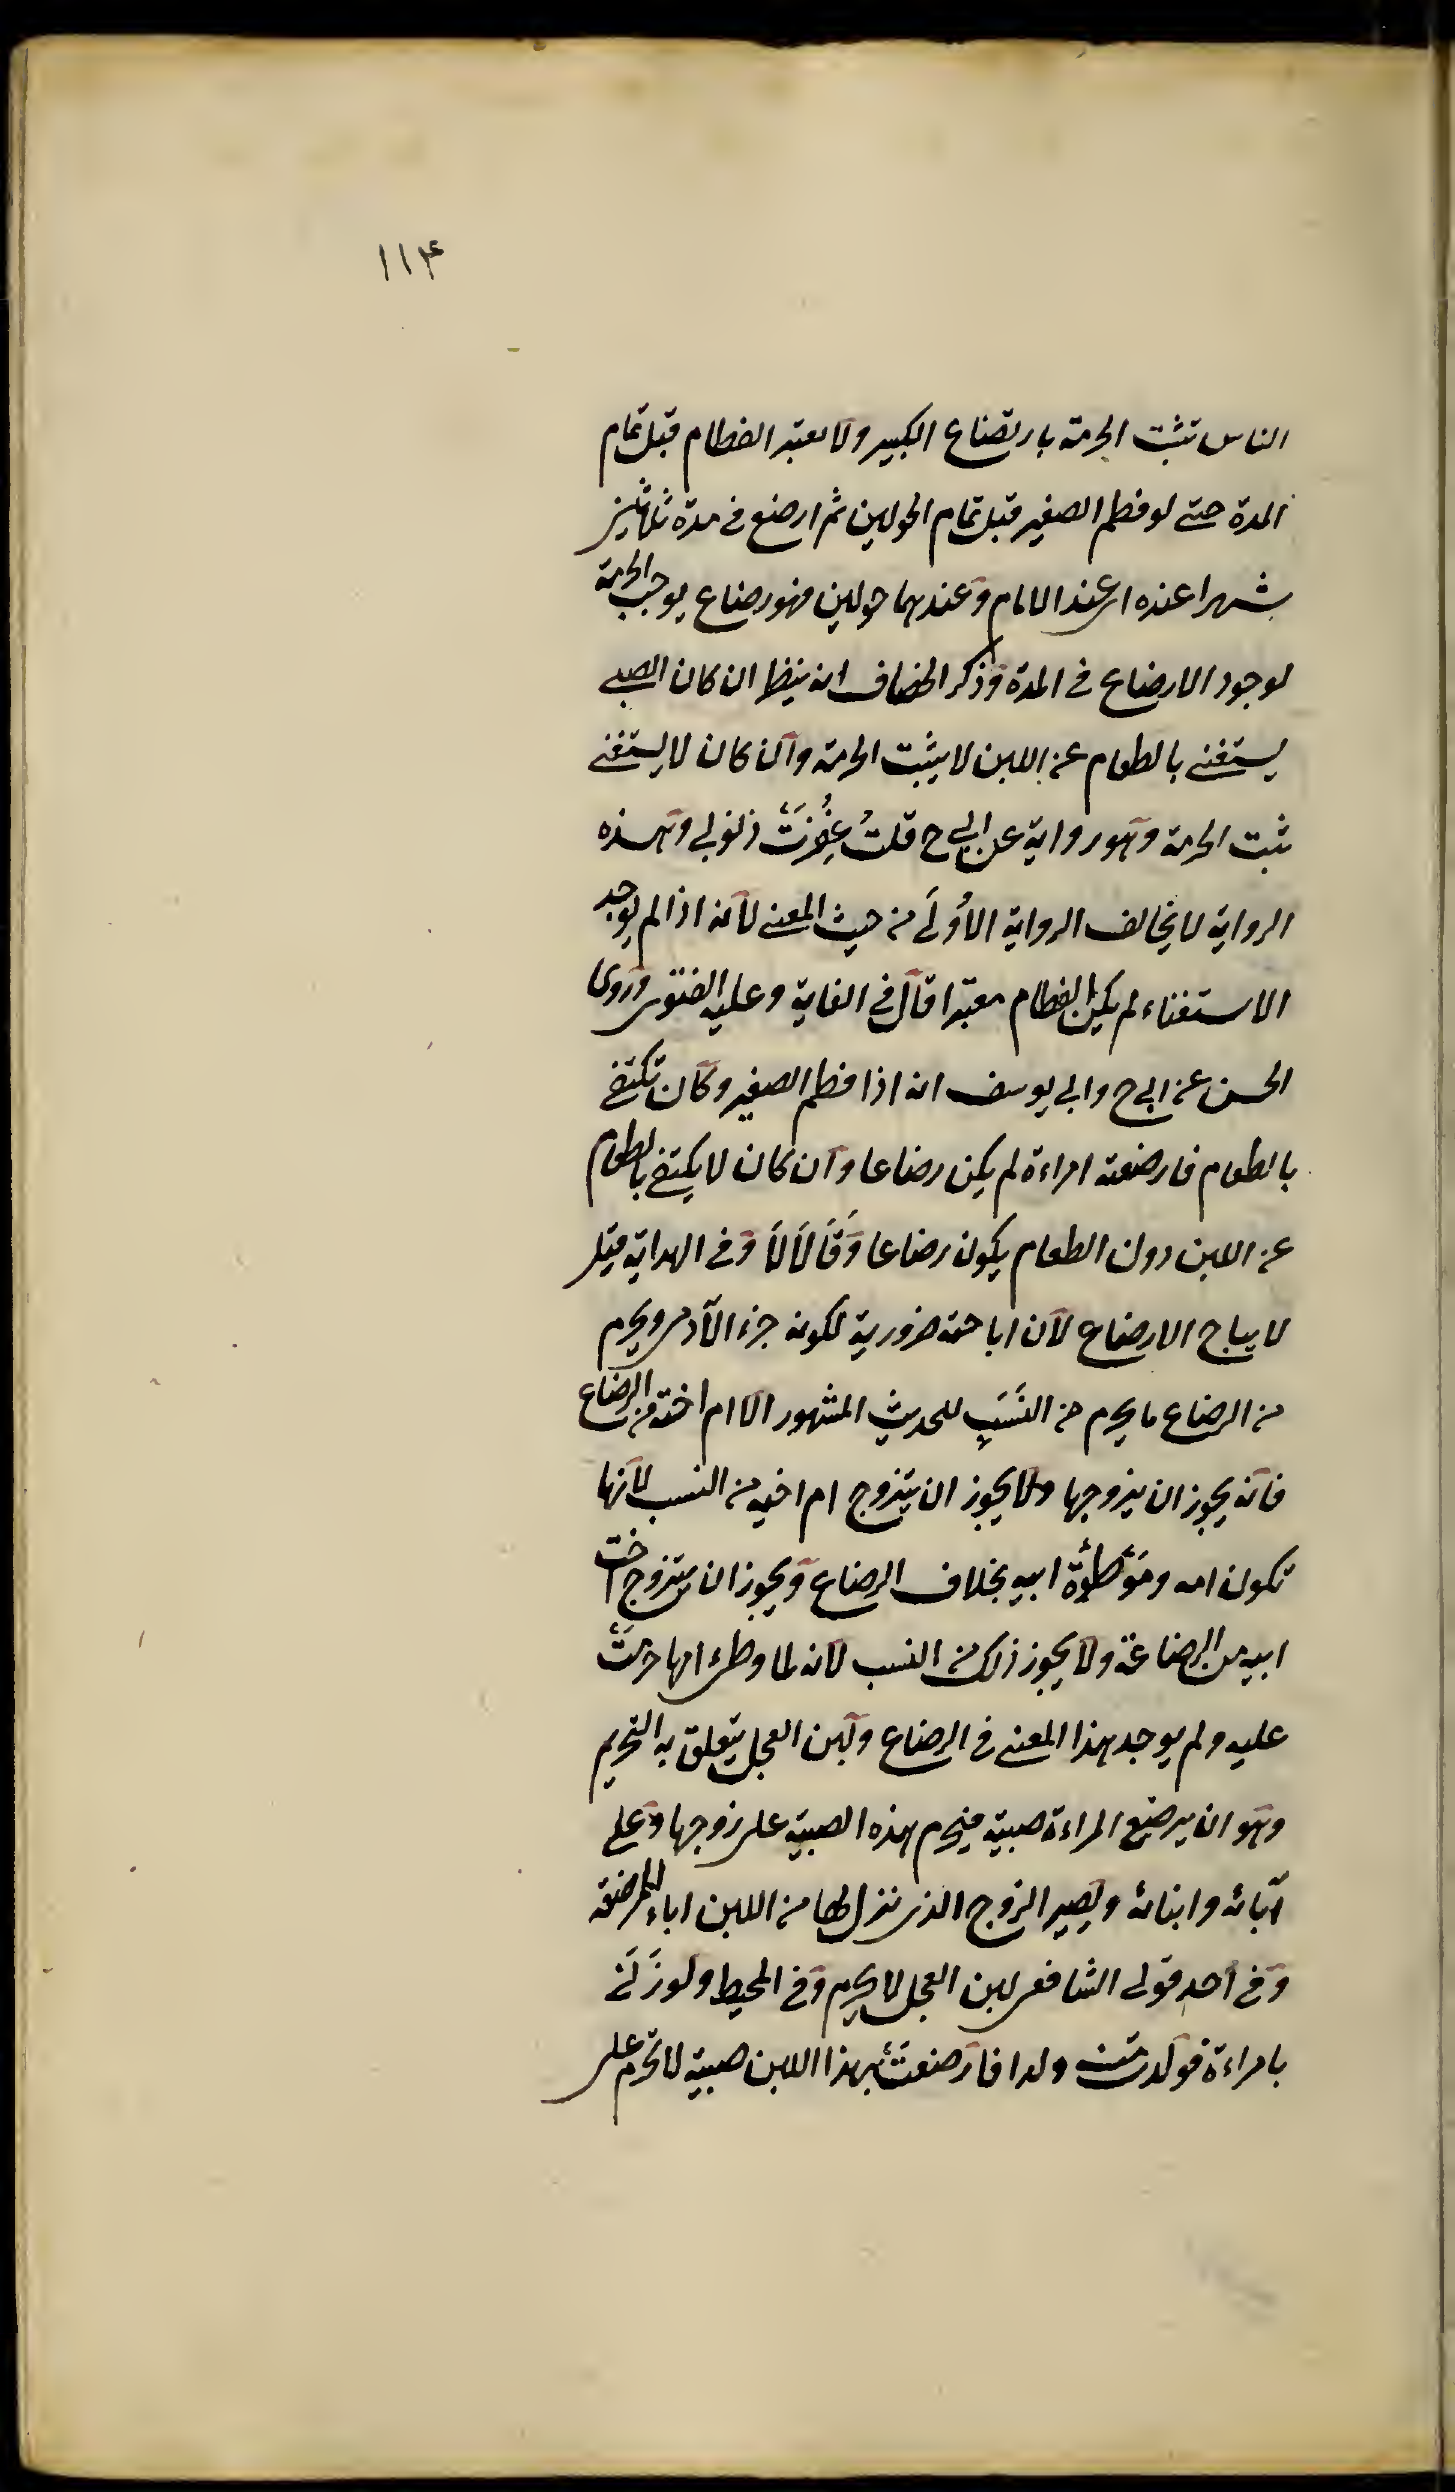 ١١۴
الناس تثبت الحرمة بارتضاع الكبير ولا يعتبر الفطام قبل تمام
المدة حتى لو فطم الصغير قبل تمام الحولين ثم ارضع في مدة ثلاثين
شهرا عنده اى عند الامام وعندهما حولين فهو رضاع يوجب الحرمة
لوجود الارضاع في المدة وذكر الخصاف انه ينظر ان كان الصبي
يستغني بالطعام عن اللبن لا يثبت الحرمة وان كان لا يستغني
يثبت الحرمة وهو رواية عن ابي ح قلتُ غُفِرَتْ ذنوبي وهذه
الرواية لا يخالف الرواية الاُولَى من حيث المعنى لانه اذا لم يوجد
الاستغناء لم يكن الفطام معتبرا قال في الغاية وعليه الفتوى وروى
الحسن عن ابي ح وابي يوسف انه اذا فطم الصغير وكان تكتفي
بالطعام فارضعته امراءة لم يكن رضاعا وان كان لا يكتفي بالطعام
عن اللبن دون الطعام يكون رضاعا وَقَالَا لَا وفي الهداية قيل
لا يباح الارضاع لان اباحته ضرورية لكونه جزء الآدمى ويحرم
من الرضاع ما يحرم من النَسَبِ للحديث المشهور الا ام اخته من الرضاع
فانه يجوز ان يزوجها ولا يجوز ان يتزوج ام اخيه من النسب لانها
تكون امه وموْطؤة ابيه بخلاف الرضاع ويجوز ان يتزوج اخت
ابيه من الرضاعة ولا يجوز ذلك من النسب لانه لما وطئ امها حرمتْ
عليه ولم يوجد هذا المعنى في الرضاع ولبن الفحل يتعلق به التحريم
وهو ان يرضع المراءة صبية فيحرم هذه الصبية على زوجها وعلى
آبائه وابنائه ويصير الزوج الذى نزل لها من اللبن اباء للمرضعة
وفي احد قولى الشافعى لبن الفحل لا يحرم وفي المحيط ولو زَنَى
بامراءة فولدت منه ولدا فارضعتْ بهذا اللبن صبية لا تحرم على